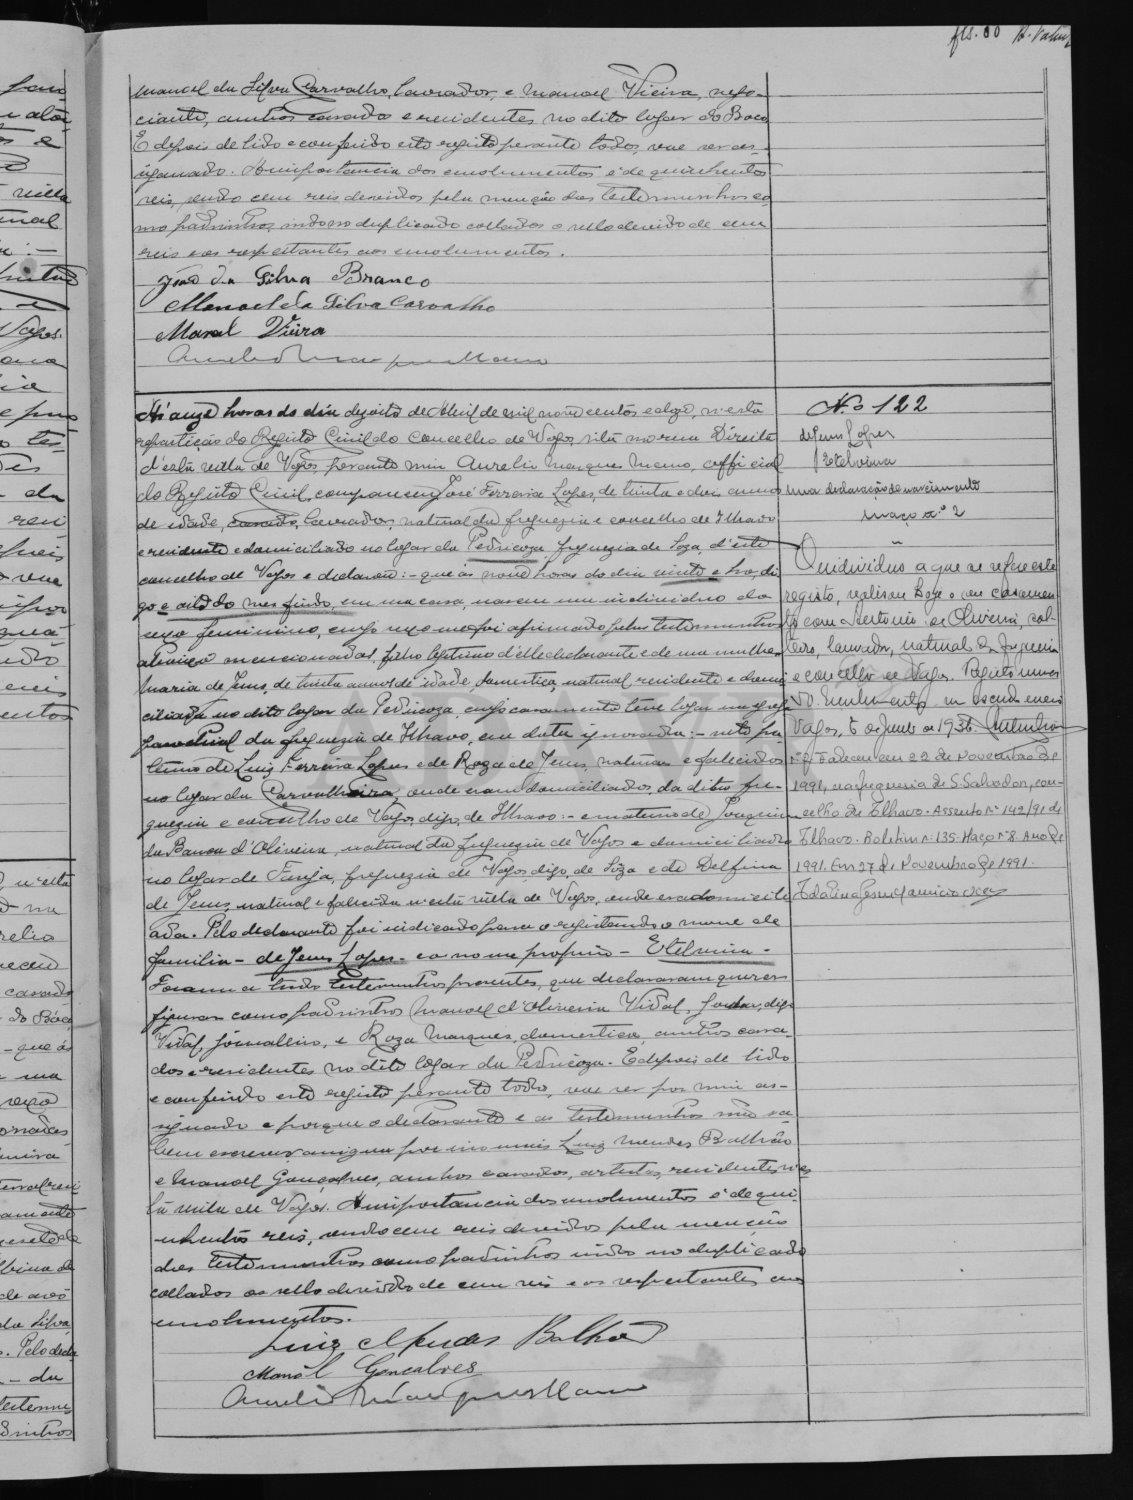 Manoel da Silva Carvalho, lavrador, e Manoel Vieira, nego-
ciante, ambos casados e residentes no dito logar do Boco
E depois de lido e conferido este registo perante todos, vae ser as-
signado. A importancia dos emolumentos é de quinhentos
reis, sendo cem reis devidos pela menção das testemunhas co-
mo padrinhos, indo no duplicado collados o sello devido de cem
reis e os respeitantes aos emolumentos.
João da Silva Branco
Manoel da Silva Carvalho
Manoel Vieira
Aurelio Marques Mano
A's onze horas do dia dezoito de Abril de mil novecentos e doze, n'esta
repartição do Registo Civil do concelho de Vagos, sita na rua Direita
d'esta villa de Vagos, perante mim Aurelio Marques Mano, official
do Registo Civil, compareceu José Ferreira Lopes, de trinta e dois annos
de idade, casado, lavrador, natural da freguezia e concelho de Ilhavo
e residente e domiciliado no logar da Pedricoza, freguezia de Soza, d'este
concelho de Vagos e declarou: - que ás nove horas do dia vinte e tres, di
go e oito do mes findo, em sua casa, nasceu um individuo do
sexo feminino, cujo sexo me foi afirmado pelas testemunhas
abaixo mencionadas, filho legitimo d'elle declarante e de sua mulher
Maria de Jesus, de trinta annos de idade, domestica, natural residente e domi
ciliada no dito logar da Pedricoza, cujo casamento teve logar na egreja
parochial da freguezia de Ilhavo, em data ignorada: - neto pa-
terno de Luiz Ferreira Lopes e de Roza de Jesus, naturaes e falecidos
no logar da Carvalheira, onde eram domiciliados, da dita fre-
guezia e concelho de Vagos, digo, de Ilhavo: - e materno de Joaquim
da Banca d'Oliveira, natural da freguezia de Vagos e domiciliado
no logar de freguezia de Vagos, digo, de Soza e de Delfina
de Jesus, natural e falecida n'esta villa de Vagos, onde era domicili
ada. Pelo declarante foi indicado para o registando o nome de
familia - de Jesus Lopes - e o nome proprio - Etelvina -
Foram a tudo testemunhas presentes, que declararam querer
figurar como padrinhos Manoel d'Oliveira Vidal, digo
Vidal, jornaleiro, e Roza Marques, domestica, ambos casa-
dos e residentes no dito logar da Pedricoza. E depois de lido
e conferido este registo perante todos, vae ser por mim as-
signado e porque o declarante e as testemunhas não sa-
bem escrever assignam por Luiz Mendes Bolhão
e Manoel Gonçalves, ambos casados, artistas, residentes n'es
ta villa de Vagos. A importancia dos emolumentos é de qui-
nhentos reis, sendo cem reis devidos pela menção
das testemunhas como padrinhos indo no duplicado
collados os sello devido de cem reis e os respeitantes aos
emolumentos.
Luiz Mendes Bolhão
Manoel Gonçalves
Aurelio Marques Mano
fls. 60
N.º 122
de Jesus Lopes
Etelvina
uma declaração de nascimento
maço n.º 2
O individuo a que se refere este
registo, realisou hoje o seu casamen
to com Antonio de Oliveira, sol-
teiro, lavrador, natural da freguesia
e concelho de Vagos. Registo numero
Vagos, 6 de Junho de 1936.
Nº 2 Faleceu em 22 de Novembro de
1991, na freguesia de S. Salvador, con-
celho de Ilhavo - Assento Nº 142/91 de
Ilhavo. Boletim n.º 135. Maço Nº 8. Ano de
1991. Em 27 de Novembro de 1991.